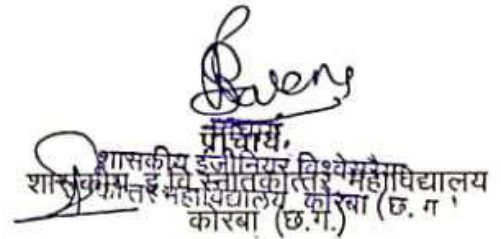 प्राचार्य
शासकीय इंजीनियर विश्वेसरैया
शासकीय इ वि स्नातकोत्तर महाविद्यालय
स्नातकोत्तर महाविद्यालय कोरबा (छ. ग
कोरबा (छ.ग.)